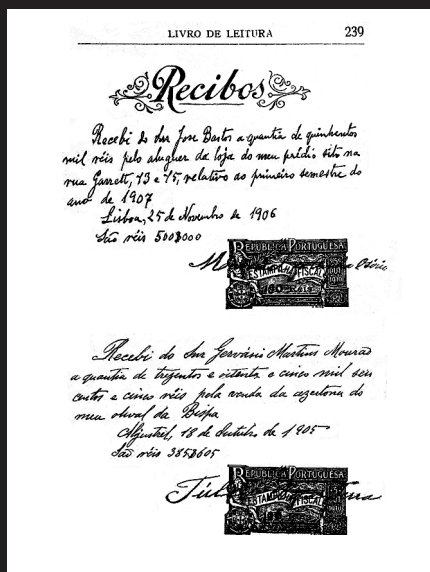 LIVRO DE LEITURA 239
Recibos
Recebi do Snr José Bastos a quantia de quinhentos
mil réis pelo aluguer da loja do meu prédio sito na
rua Garrett, 73 e 75, relativo ao primeiro semestre do
ano de 1907
Lisboa, 25 de Novembro de 1906
São réis 500$000
REPÚBLICA PORTUGUESA
ESTAMPILHA FISCAL
Recebi do Snr Gervásio Martins Mourão
a quantia de trezentos e oitenta e cinco mil seis
centos e cinco réis pela venda da azeitona do
meu olival da Bispa
Aljustrel, 18 de Outubro de 1905
São réis 385$605
REPÚBLICA PORTUGUESA
ESTAMPILHA FISCAL